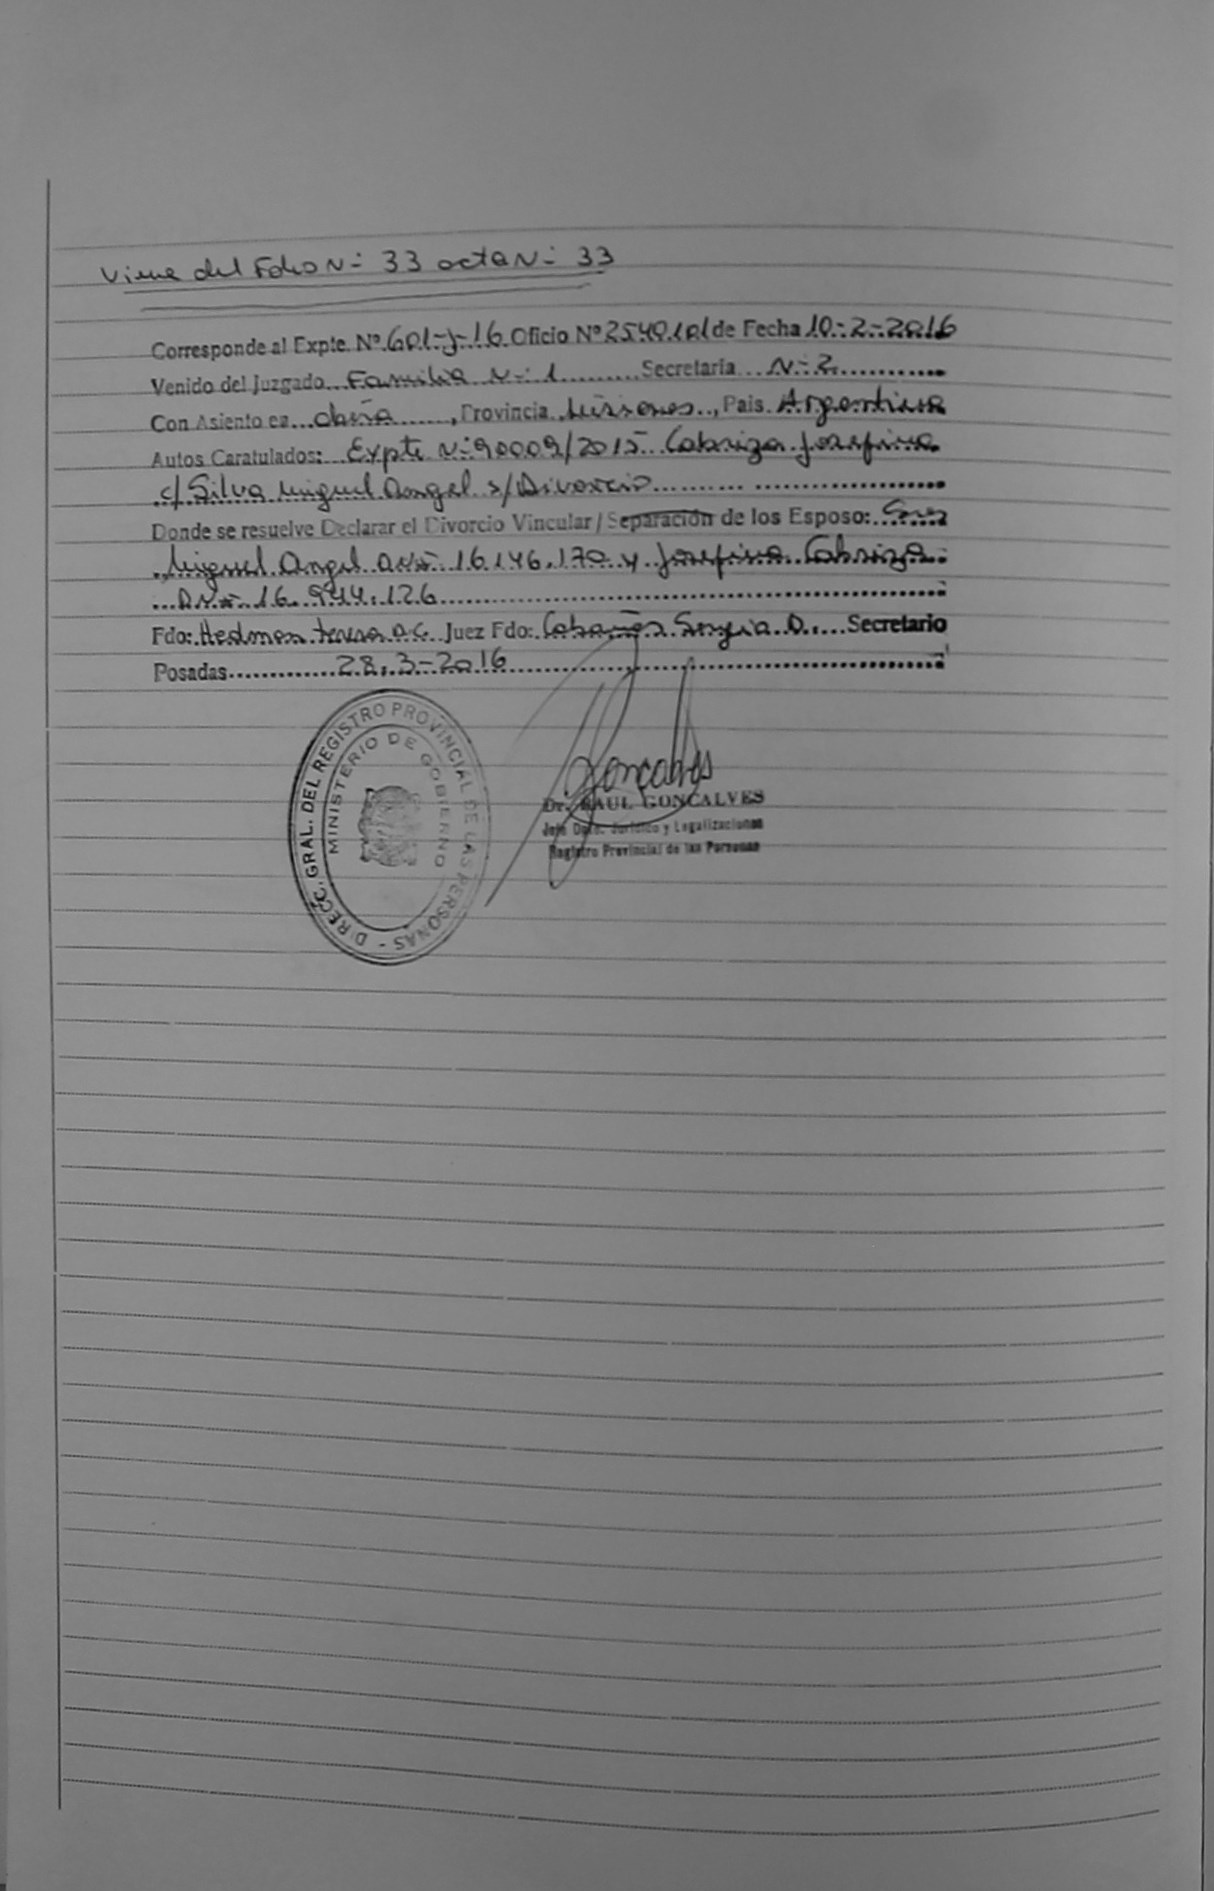 Viene del Folio N- 33 acta N- 33
Corresponde al Expte. Nº 601-J-16 Oficio Nº de Fecha 10-2-2016
Venido del Juzgado Familia N- 1 Secretaria N- 2
Con Asiento en Oberá, Provincia Misiones, Pais Argentina
Autos Caratulados: Expte N- 90009/2015 Cabriza Josefina
c/ Silva Miguel Angel s/ Divorcio
Donde se resuelve Declarar el Divorcio Vincular / Separación de los Esposo:
Miguel Angel DNI 16.146.170 y Josefina Cabriza
DNI 16.944.126
Fdo: Juez Fdo: Secretario
Posadas 28.3-2016
DIRECC. GRAL. DEL REGISTRO PROVINCIAL DE LAS PERSONAS -
MINISTERIO DE GOBIERNO
Goncalves
Dr. RAUL GONCALVES
Jefe Dpto. Jurídico y Legalizaciones
Registro Provincial de las Personas